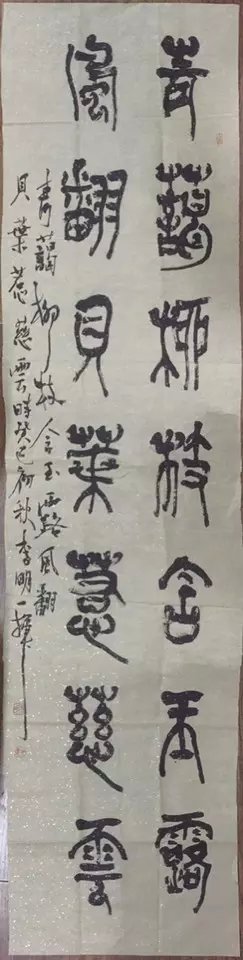 青藹柳枝含玉露
風翻貝葉惹慈雲
青藹柳枝含玉露風翻
貝葉惹慈雲時癸巳秋李明一